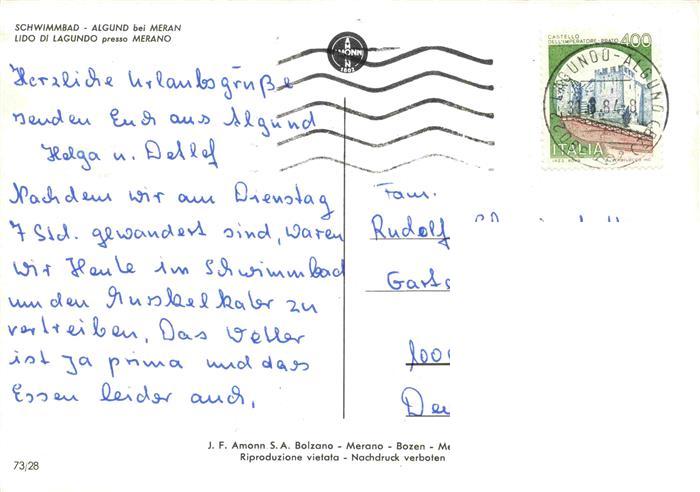 SCHWIMMBAD - ALGUND bei MERAN
LIDO DI LAGUNDO presso MERANO
Herzliche Urlaubsgrüße
senden Euch aus Algund
Helga u. Detlef
Nachdem wir am Dienstag
7 Std. gewandert sind, waren
wir Heute im Schwimmbad
um den Muskelkater zu
vertreiben. Das Wetter
ist ja prima und das
Essen leider auch.
AMONN
1802
CASTELLO
DELL'IMPERATORE - PRATO 400
ITALIA
LAGUNDO-ALGUND
Fam.
Rudolf
Garts
Deu
J. F. Amonn S.A. Bolzano - Merano - Bozen - Me
Riproduzione vietata - Nachdruck verboten
73/28